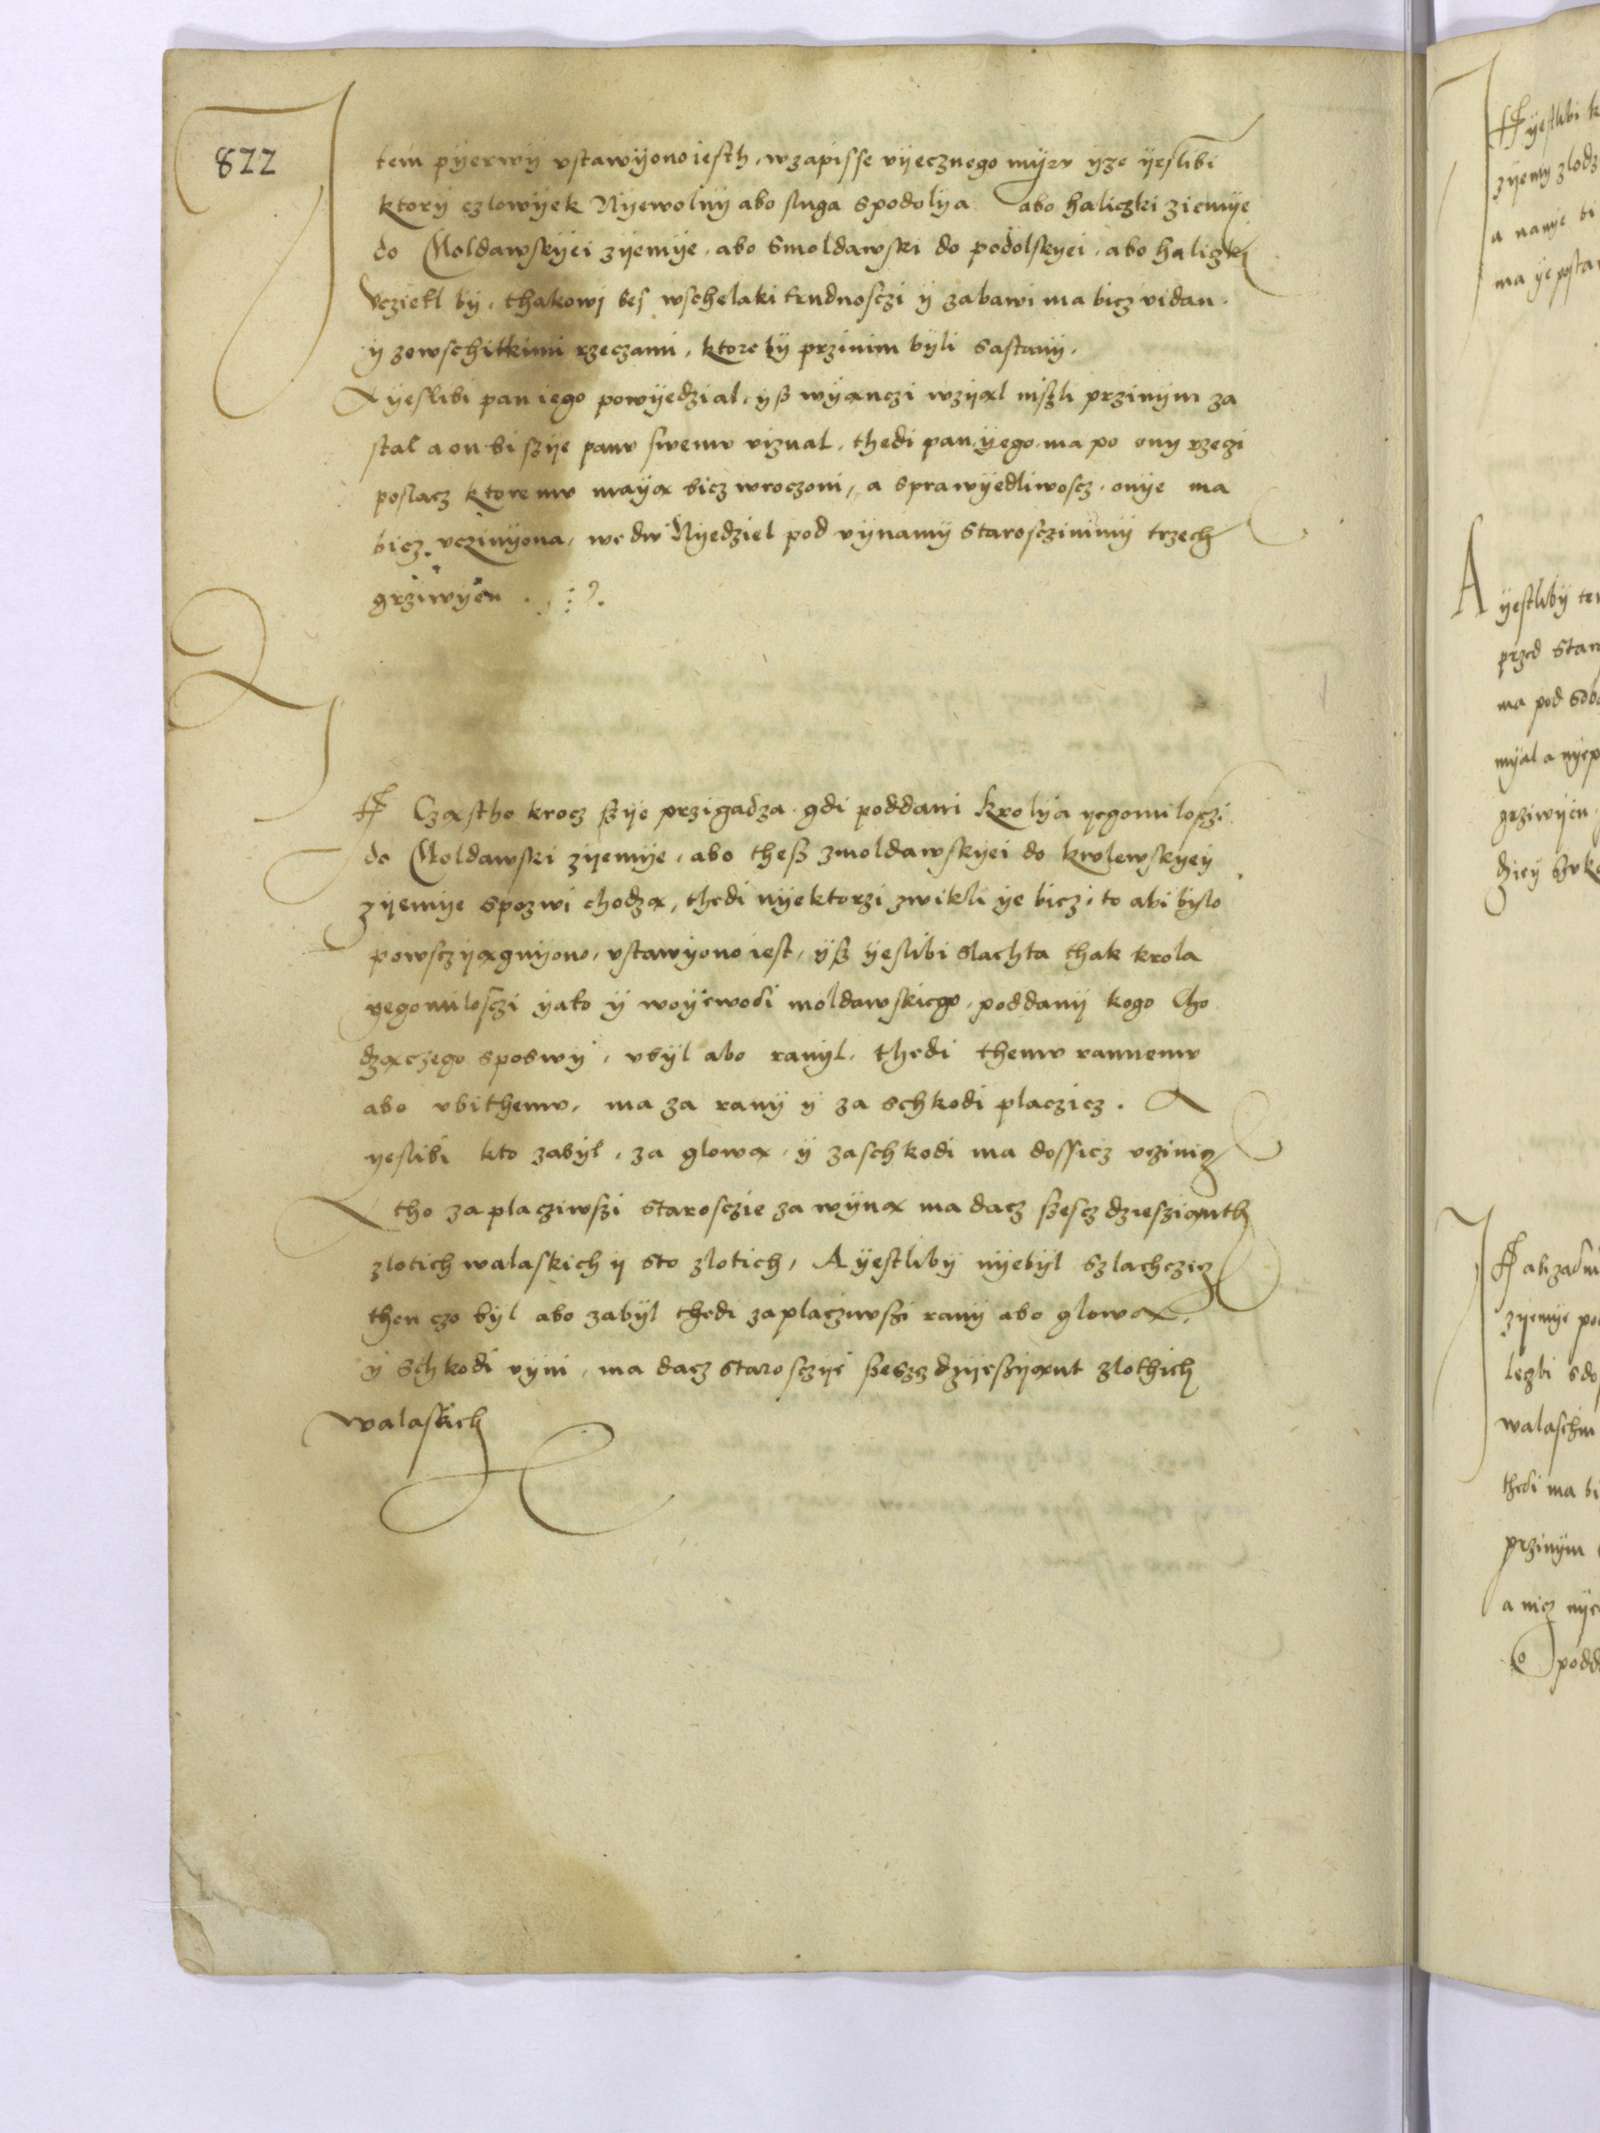 822
Item pyerwy vstawyono iesth, w zapisse vyecznego myrv yze yeslibi
ktory czlowyek Nyewolny abo sluga s podolya abo haliczki ziemye
do Moldawskyei zyemye, abo s moldawski do podolskyei, abo haliczki
vcziekl by, thakowi bes wschelaki trudnosczi y zabawi ma bicz vidan.
y zowschitkimi rzeczami, ktore by przinim byli zastany.
A yeslibi pan iego powyedzial, yß wyanczi wzyal nißli przinym za
stal a on bi szye panv swemv viznal, thedi pan yego ma po ony rzeczi
poslacz ktoremv mayą bicz wroczoni, a sprawyedliwoscz onye ma
bicz vczinyona, we dw Nyedziel pod vynamy starosczinimy trzech
grziwyen
Cząstho krocz szye przigadza gdi poddani krolya yego milosczi
do Moldawski zyemye, abo theß z moldawskyei do krolewskyey
zyemye s pozwi chodzą, thedi nyektorzi zwikli ye bicz, to abi bylo
powsczyągnyono, vstawyono iest, yß yeslibi slachta thak krola
yego milosczi yako y woyewodi moldawskiego, poddany kogo cho
dzączego s poswy, vbyl abo ranyl, thedi themv rannemv
abo vbithemv, ma za rany y za schkodi placzicz. A
yeslibi kto zabyl, za glową, y za schkodi ma dossicz vczinicz
A tho zaplacziwszi starosczie za wyną ma dacz szescz dziesziąnth
zlotich walaskich y sto zlotich, A yestliby nyebyl szlachczicz
then czo byl abo zabyl thedi zaplacziwszi rany abo glową,
y schkodi vyni, ma dacz starosczye szeszcz dzyeszyąnt zlothich
walaskich
yestlibi k
zyemy zlodz
a nanye bi
ma ye posta
A yestliby te
przed star
ma pod sob
myal a nyep
grziwyen
abi zadni
zyemye po
legbi s do
walaschin
thedi ma bi
przinym
a nicz nye
podd